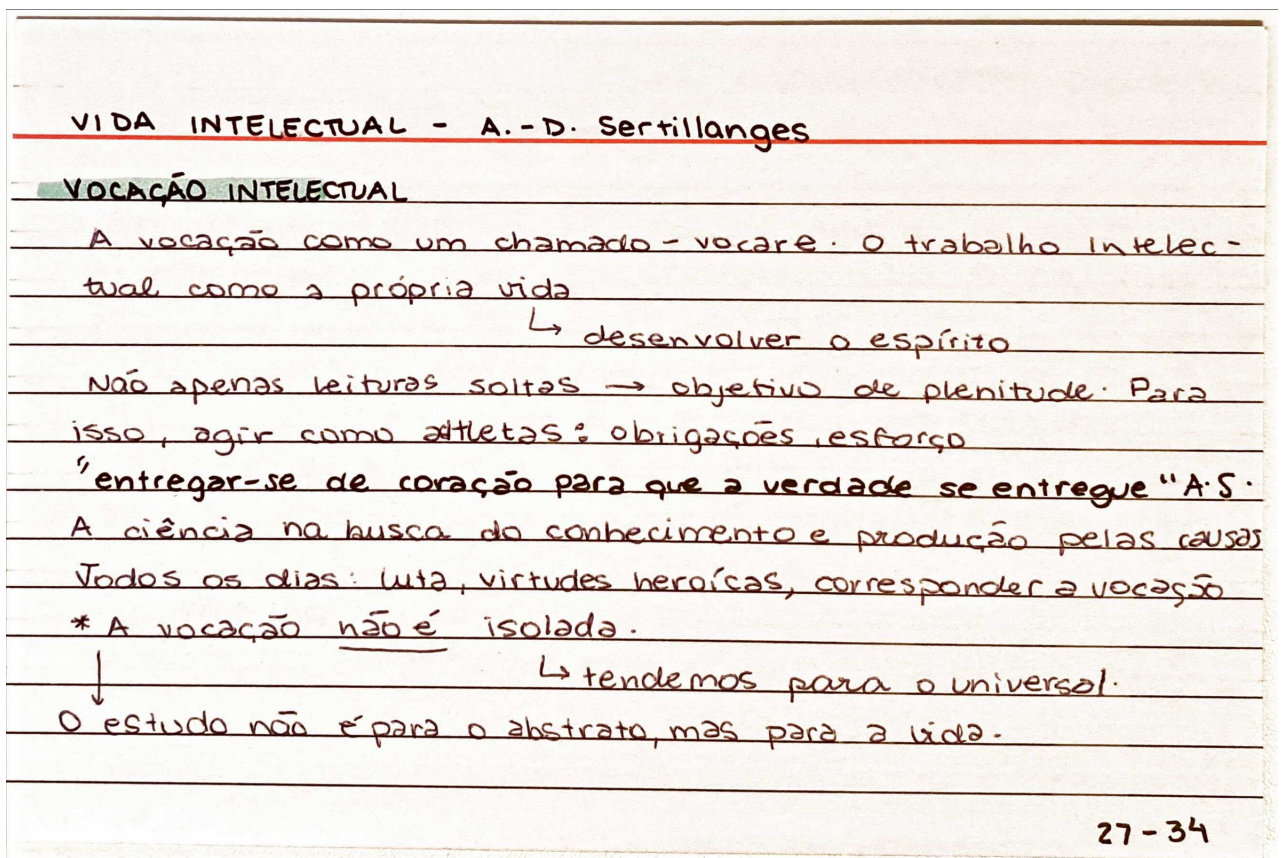 VIDA INTELECTUAL - A.-D. Sertillanges
VOCAÇÃO INTELECTUAL
A vocação como um chamado - vocare. O trabalho intelec-
tual como a própria vida
↳ desenvolver o espírito
Não apenas leituras soltas → objetivo de plenitude. Para
isso, agir como atletas: obrigações, esforço
"entregar-se de coração para que a verdade se entregue" A.S.
A ciência na busca do conhecimento e produção pelas causas
Todos os dias: luta, virtudes heroícas, corresponder a vocação
* A vocação não é isolada.
↳ tendemos para o universal.
↓
O estudo não é para o abstrato, mas para a vida.
27-34